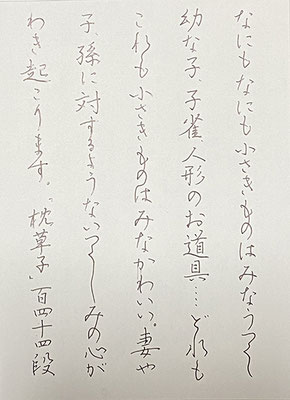 なにもなにも小さきものはみなうつくし
幼な子、子雀、人形のお道具……どれも
これも小さきものはみなかわいい。妻や
子、孫に対するようないつくしみの心が
わき起こります。「枕草子」百四十四段